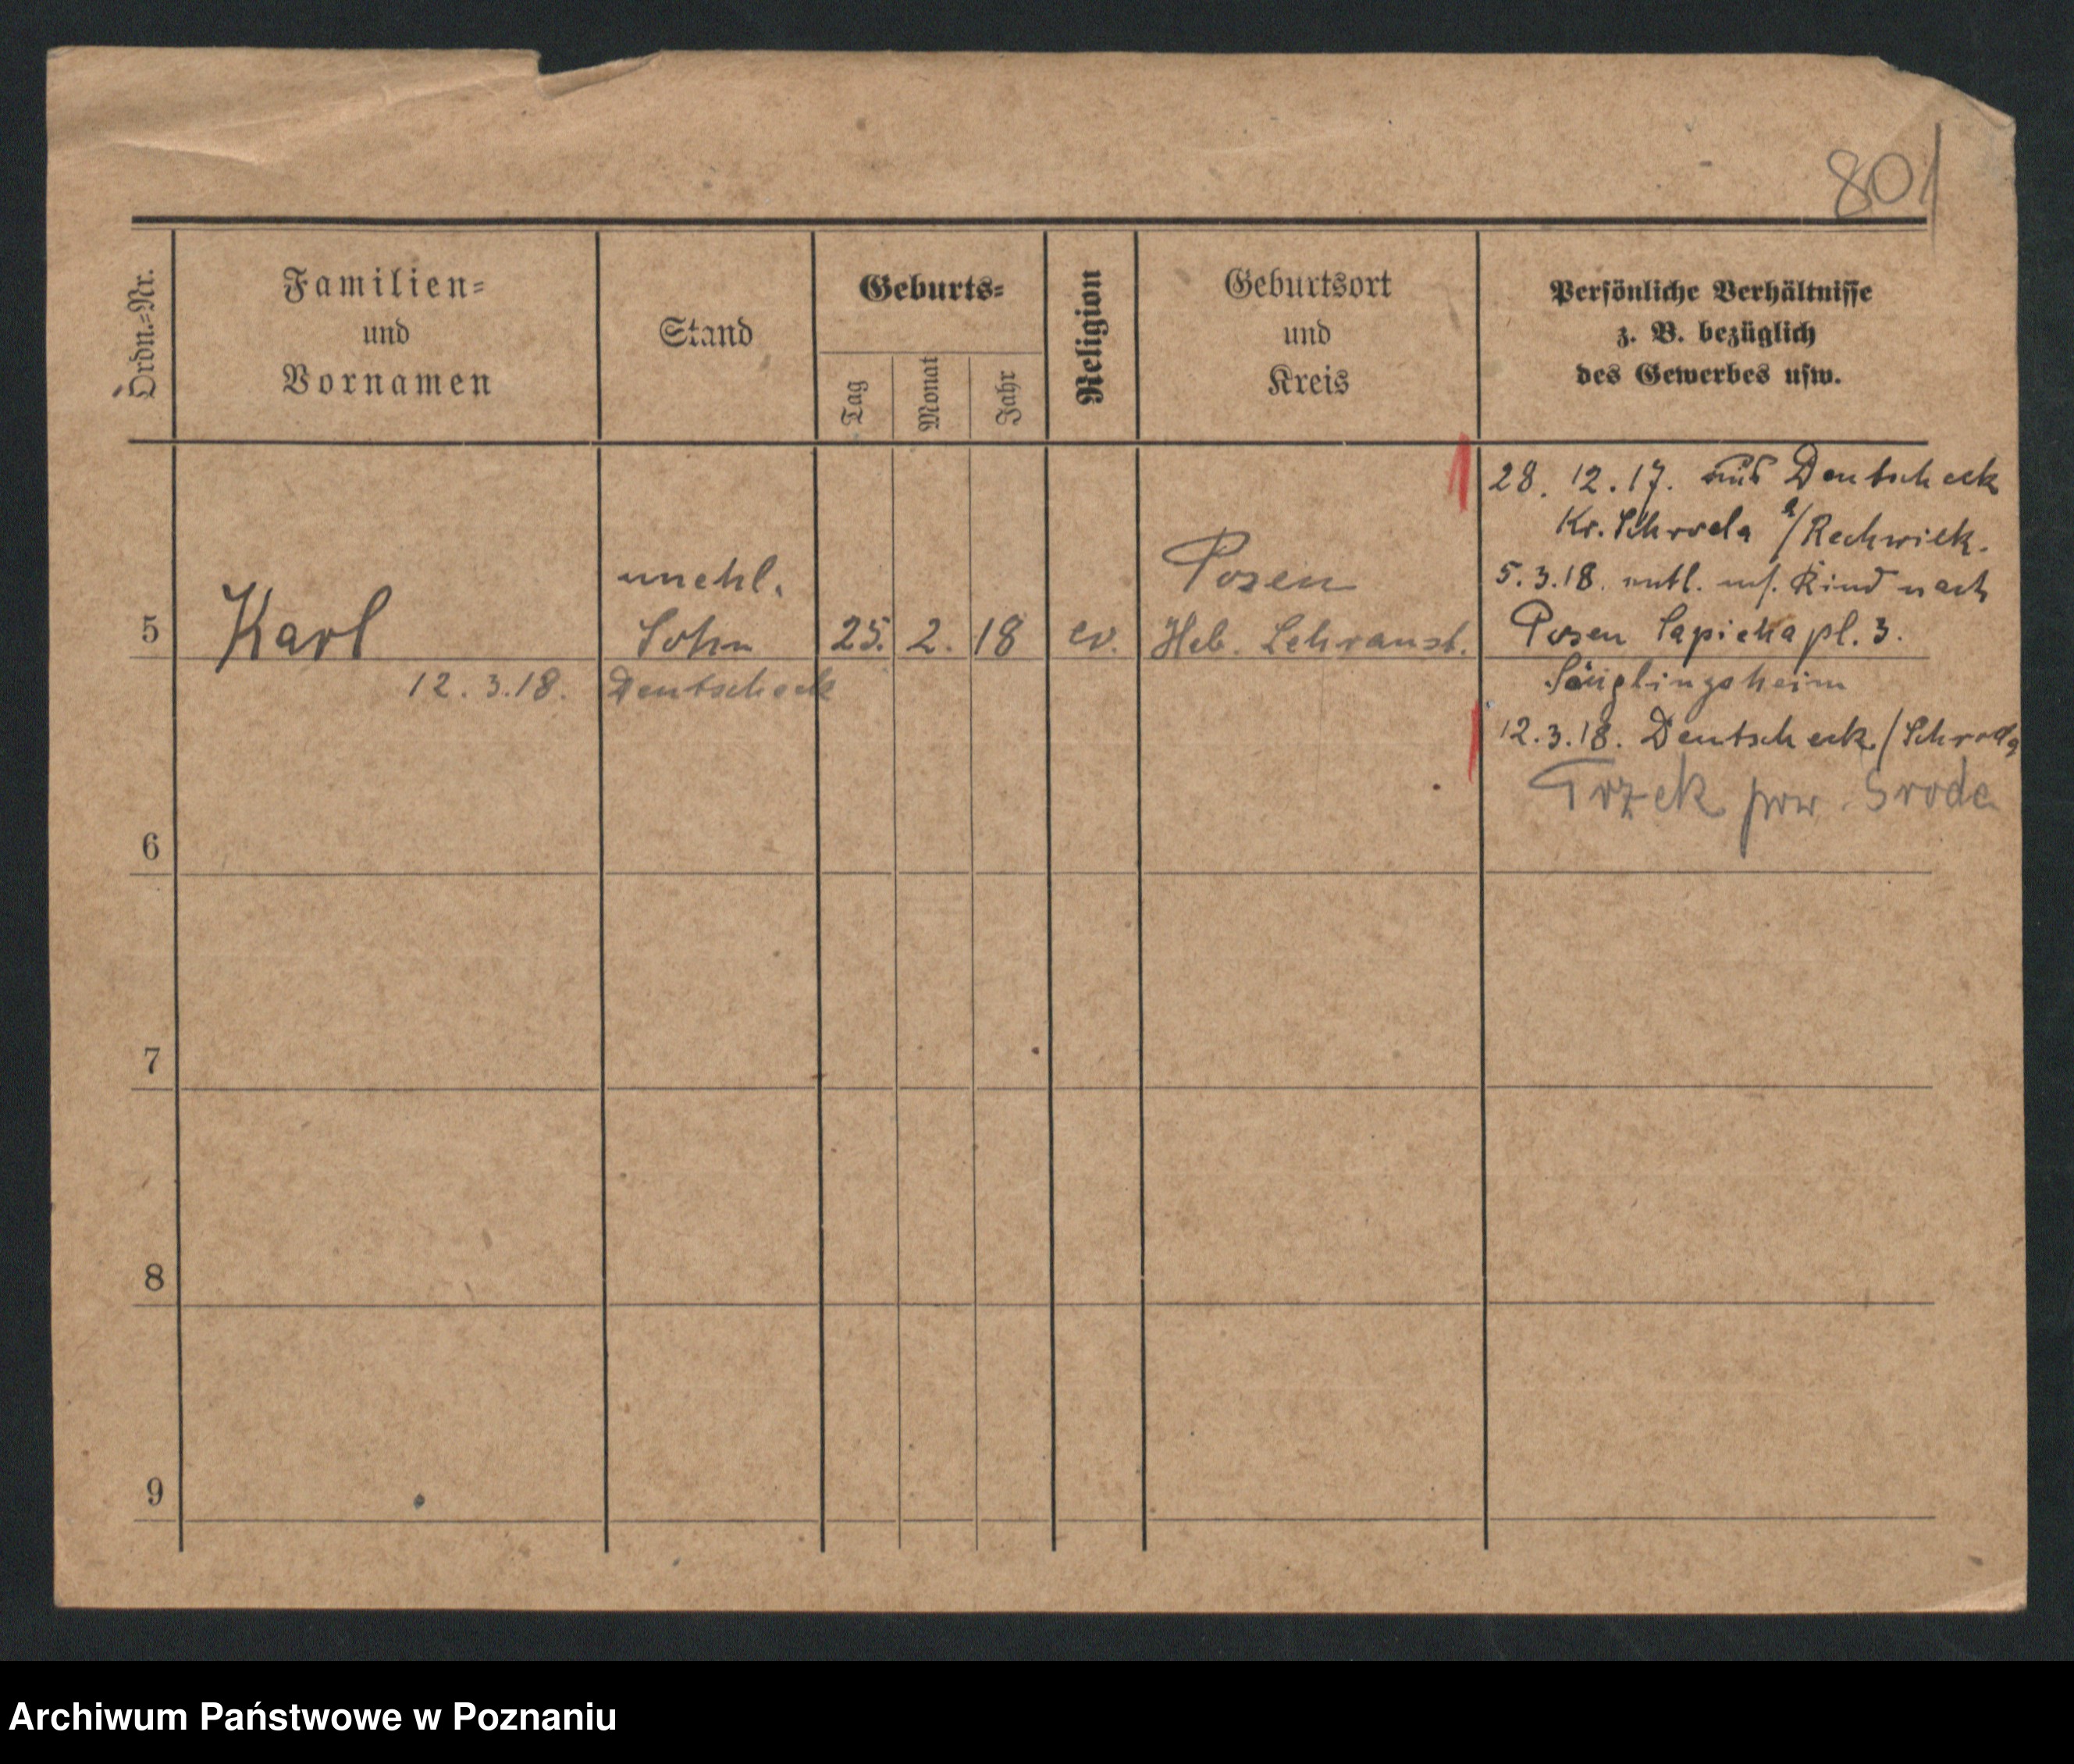 801
Ordn.-Nr.
Familien-
und
Vornamen
Stand
Geburts-
Tag
Monat
Jahr
Religion
Geburtsort
und
Kreis
Persönliche Verhältnisse
z. B. bezüglich
des Gewerbes usw.
28. 12. 17. aus Deutscheck
Kr. Schroda b/Rechwick.
5. 3. 18. entl. mit Kind nach
Posen Sapiehapl. 3.
Säuglingsheim
12. 3. 18. Deutscheck / Schroda
Trzek pow. Sroda
5
Karl
unehl.
Sohn
25. 2. 18
ev.
Posen
Heb. Lehranst.
12. 3. 18. Deutscheck
6
7
8
9
Archiwum Państwowe w Poznaniu